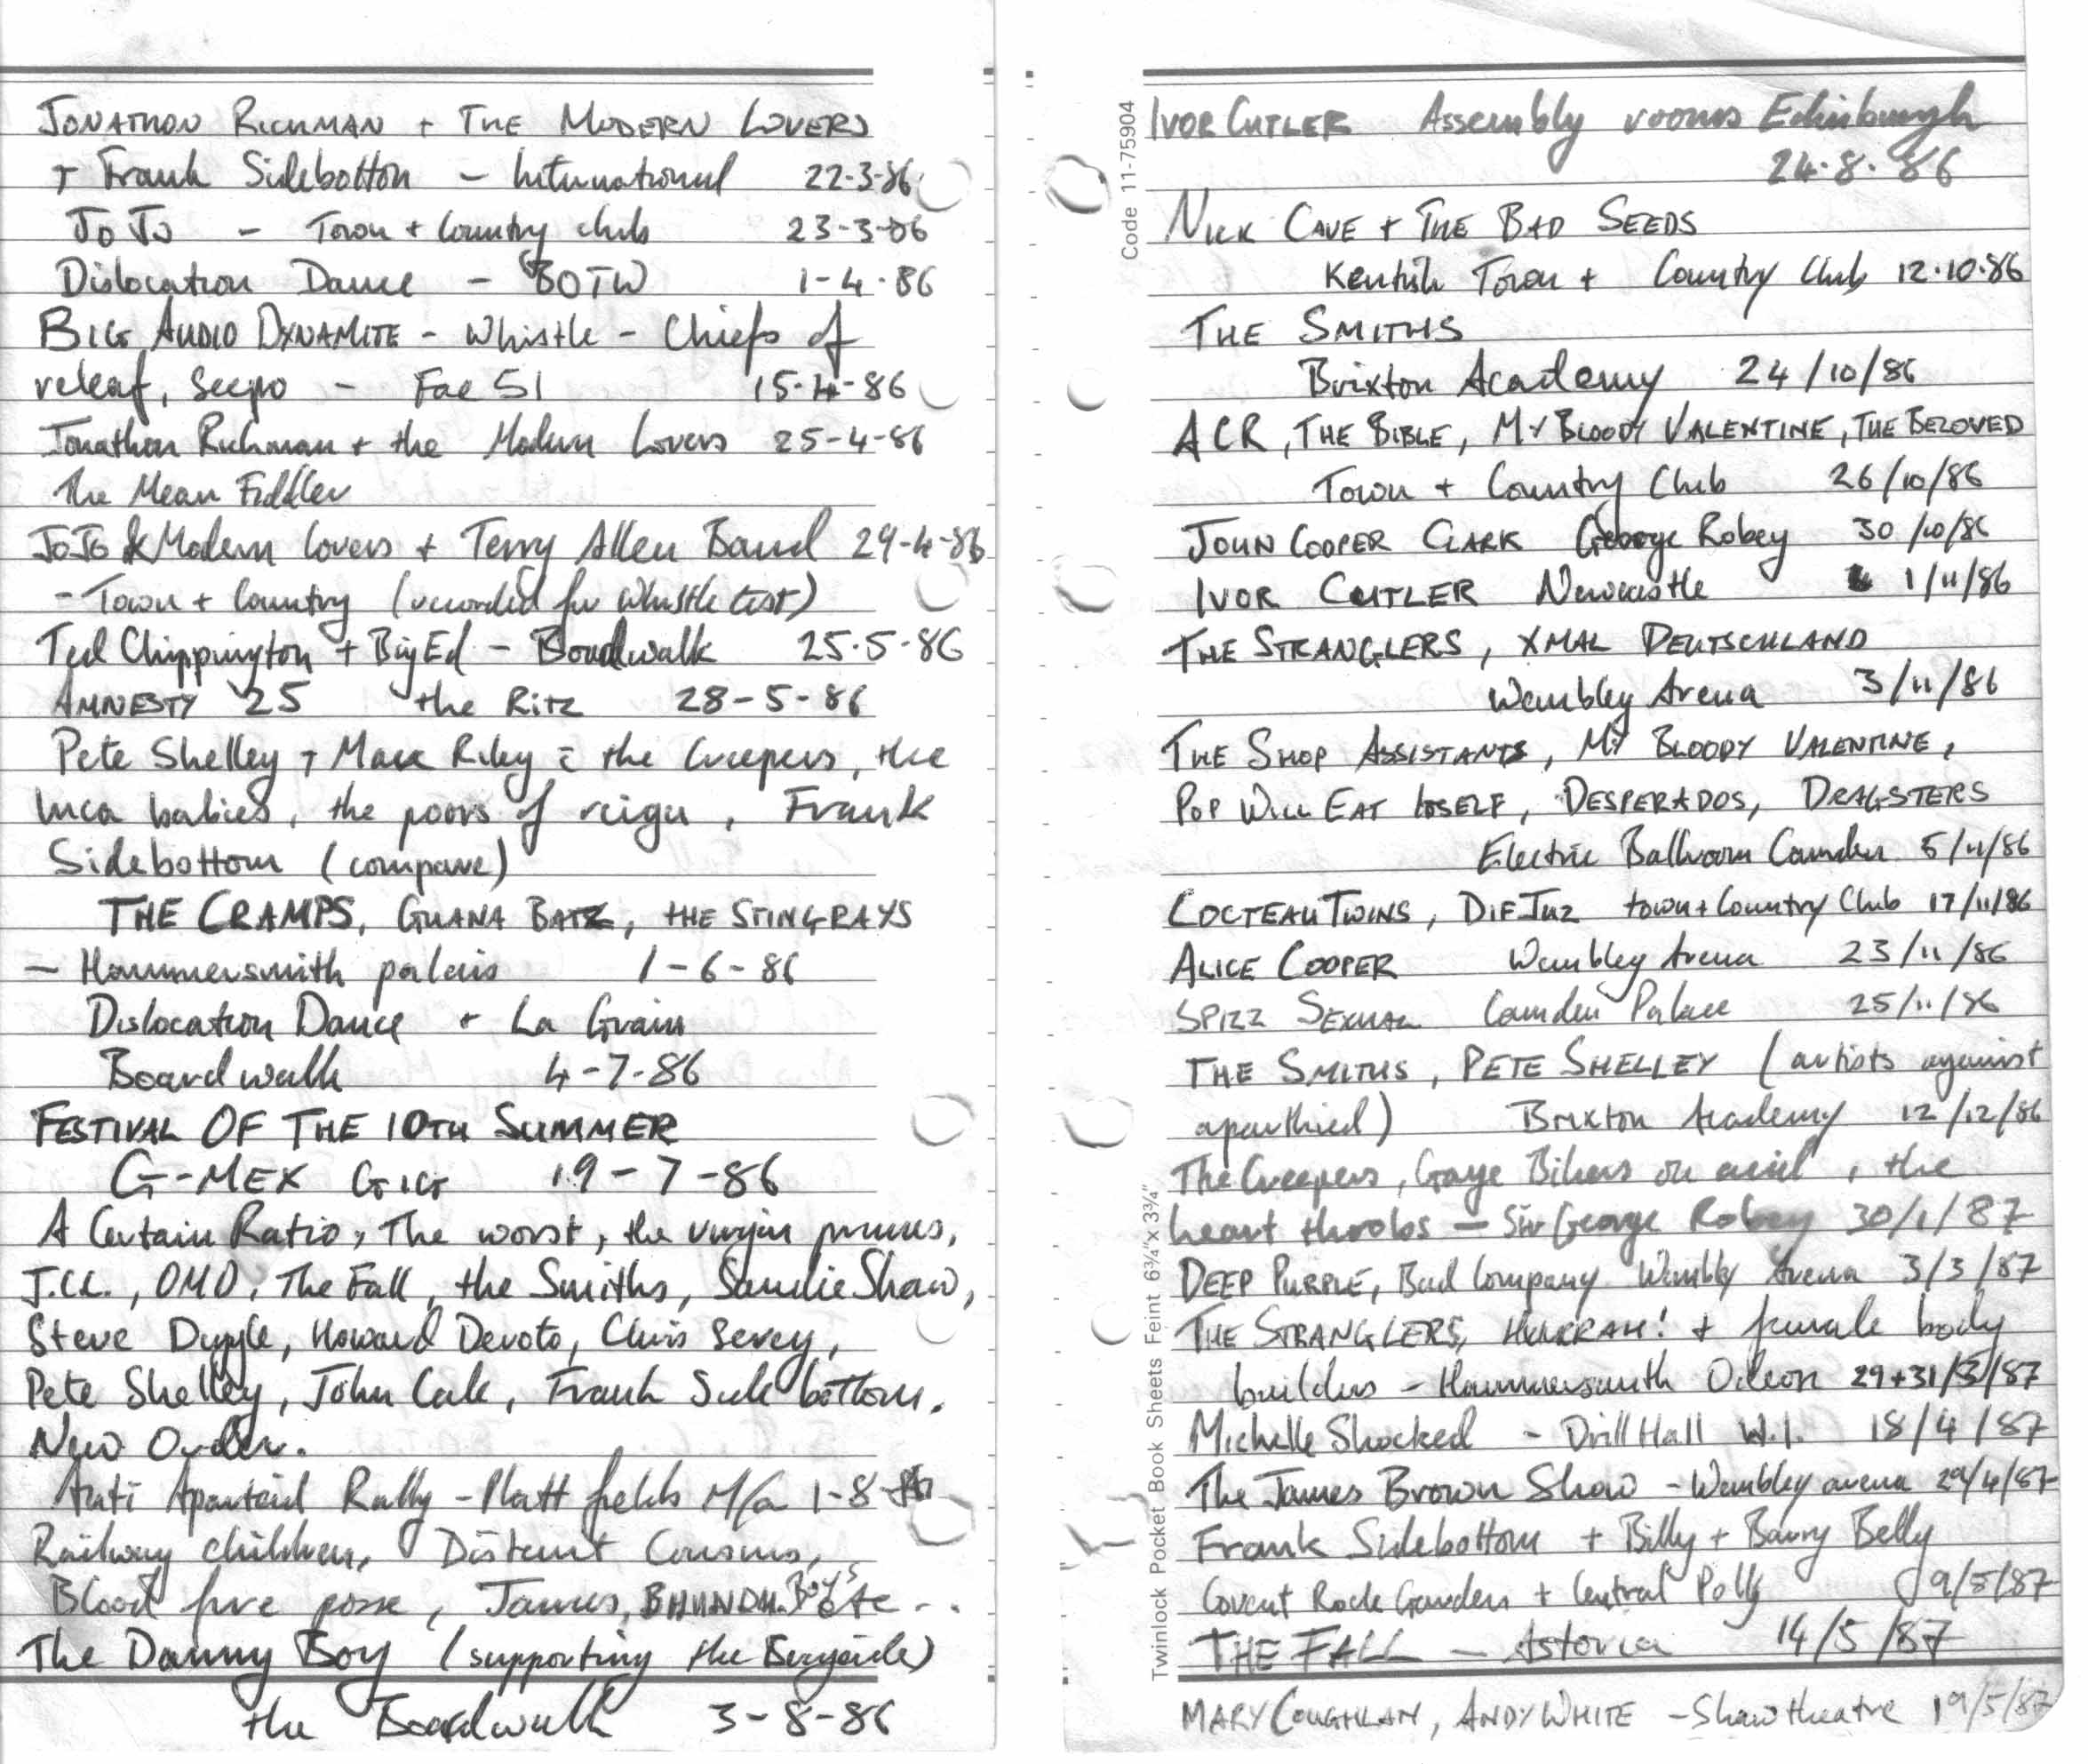 JONATHON RICHMAN + THE MODERN LOVERS
+ Frank Sidebottom - International 22-3-86
JoJo - Town + Country club 23-3-86
Dislocation Dance - BOTW 1-4-86
BIG AUDIO DYNAMITE - Whistle - Chiefs of
releaf, Seepo - Fac 51 15-4-86
Jonathan Richman + the Modern Lovers 25-4-86
The Mean Fiddler
JoJo & Modern Lovers + Terry Allen Band 29-4-86
- Town + Country (recorded for Whistle test)
Ted Chippington + Big Ed - Boardwalk 25-5-86
AMNESTY 25 the Ritz 28-5-86
Pete Shelley + Marc Riley = the Creepers, the
Inca babies, the poors of reign, Frank
Sidebottom (compare)
THE CRAMPS, GUANA BATZ, THE STINGRAYS
- Hammersmith palais 1-6-86
Dislocation Dance + La Grain
Boardwalk 4-7-86
FESTIVAL OF THE 10TH SUMMER
G-MEX GIG 19-7-86
A Certain Ratio, The worst, the virgin prunes,
J.C.C., OMD, The Fall, the Smiths, Sandie Shaw,
Steve Diggle, Howard Devoto, Chris Sevey,
Pete Shelley, John Cale, Frank Sidebottom.
New Order.
Anti Aparteid Rally - Platt fields M/cr 1-8-86
Railway children, Distant Cousins,
Blood fire posse, James, BHUNDU Boys etc ..
The Danny Boy (supporting the )
the Boardwalk 3-8-86
Code 11-75904
IVOR CUTLER Assembly rooms Edinburgh
24.8.86
NICK CAVE + THE BAD SEEDS
Kentish Town + Country Club 12.10.86
THE SMITHS
Brixton Academy 24/10/86
ACR, THE BIBLE, MY BLOODY VALENTINE, THE BELOVED
Town + Country Club 26/10/86
JOHN COOPER CLARK George Robey 30/10/86
IVOR CUTLER Newcastle 1/11/86
THE STRANGLERS, XMAL DEUTSCHLAND
Wembley Arena 3/11/86
THE SHOP ASSISTANTS, MY BLOODY VALENTINE,
POP WILL EAT ITSELF, DESPERADOS, DRAGSTERS
Electric Ballroom Camden 5/11/86
COCTEAU TWINS, DIF JUZ town + Country Club 17/11/86
ALICE COOPER Wembley Arena 23/11/86
SPIZZ SEXUAL Camden Palace 25/11/86
THE SMITHS, PETE SHELLEY (artists against
aparthied) Brixton Academy 12/12/86
The Creepers, Gaye Bikers on acid, the
heart throbs - Sir George Robey 30/1/87
DEEP PURPLE, Bad Company Wembly Arena 3/3/87
THE STRANGLERS, HURRAH! + female body
builders - Hammersmith Odeon 29+31/3/87
Michelle Shocked - Drill Hall W.1. 18/4/87
The James Brown Show - Wembley arena 29/4/87
Frank Sidebottom + Billy + Barry Belly
Covent Rock Garden + Central Polly 9/5/87
THE FALL - Astoria 14/5/87
MARY COUGHLAN, ANDY WHITE - Shaw theatre 19/5/87
Twinlock Pocket Book Sheets Feint 6¾"x 3¾"